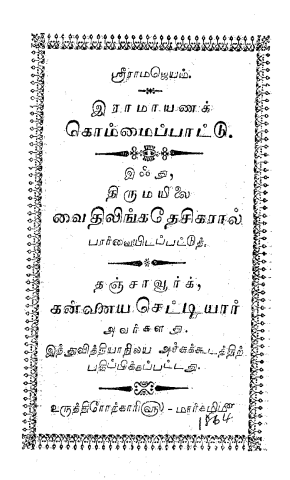 ஸ்ரீராமஜெயம்.
இராமாயணக்
கொம்மைப்பாட்டு.
இஃது,
திருமயிலை
வைதிலிங்கதேசிகரால்
பார்வையிடப்பட்டுத்.
தஞ்சாவூர்க்,
கன்னைய செட்டியார்
அவர்களது.
இந்துவித்தியாநிலய அச்சுக்கூடத்திற்
பதிப்பிக்கப்பட்டது.
உருத்திரோற்காரி௵ - மார்கழி௴
1864